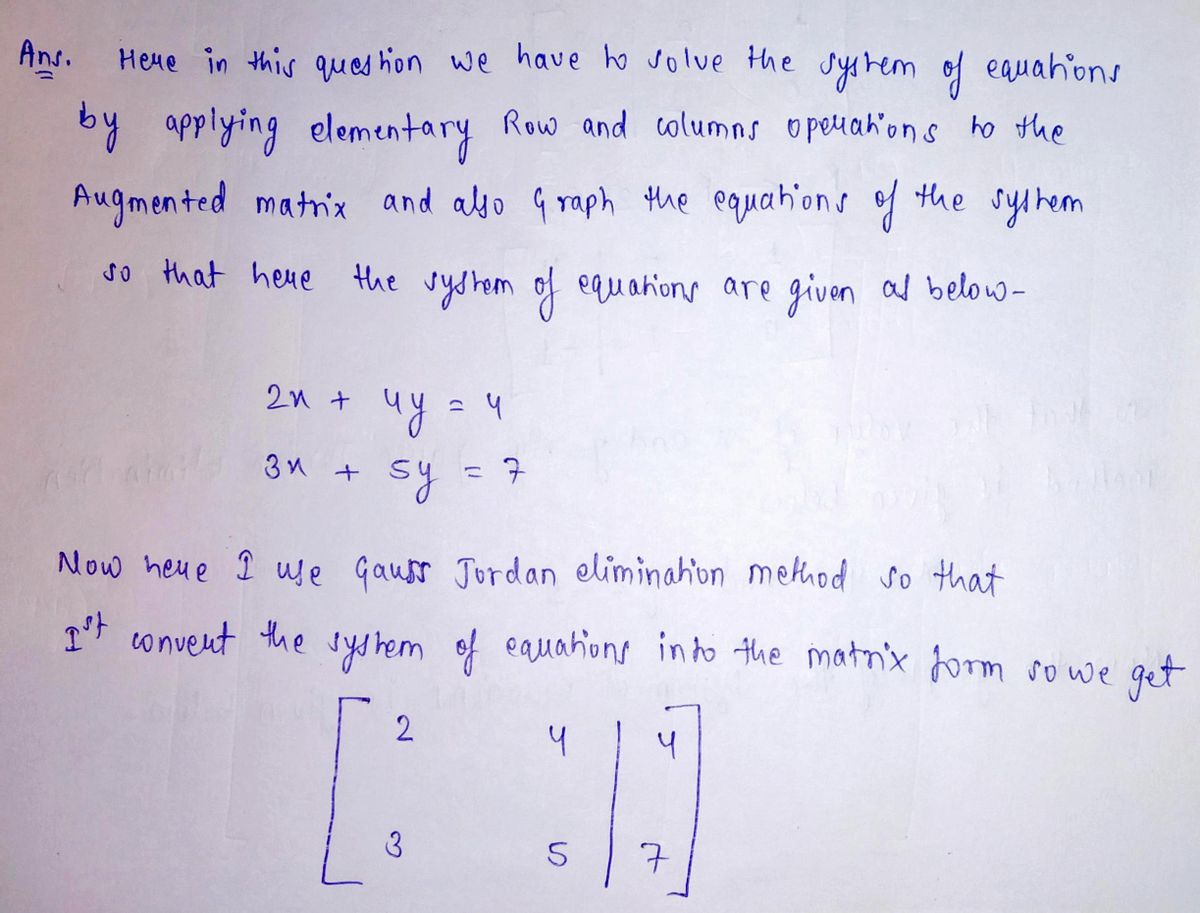 Ans. Here in this question we have to solve the system of equations
by applying elementary Row and columns operations to the
Augmented matrix and also Graph the equations of the system
so that here the system of equations are given as below-
2x + 4y = 4
3x + 5y = 7
Now here I use Gauss Jordan elimination method so that
Ist convert the system of equations into the matrix form so we get
2 4 | 4
3 5 | 7